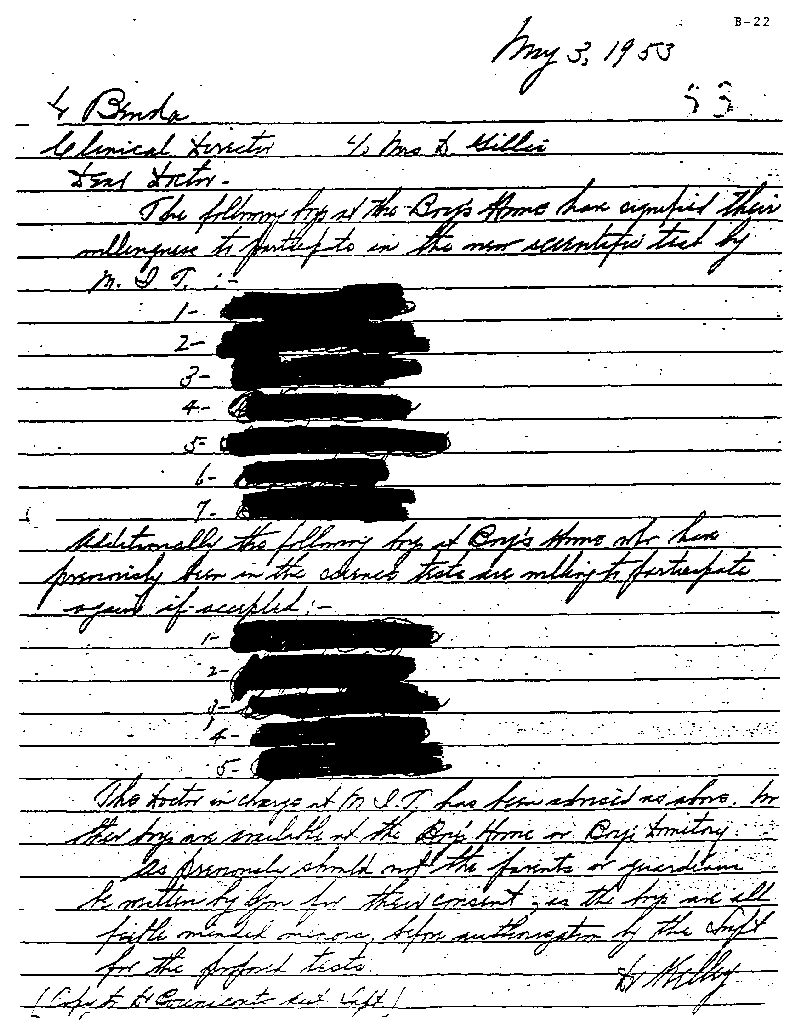 B-22
May 3, 1953
53
Dr Benda
Clinical Director c/o Mrs D. Gillis
Dear Doctor -
The following boys at the Boy's Home have signified their
willingness to participate in the new scientific test by
M. I. T. :-
1-
2-
3-
4-
5-
6-
7-
Additionally the following boys at Boy's Home who have
previously been in the science tests are willing to participate
again if accepted :-
1-
2-
3-
4-
5-
The Doctor in charge at M. I. T. has been advised as above. No
other boys are available at the Boy's Home or Boys Dormitory.
As previously should not the parents or guardian
be written by you for their consent, as the boys are all
feeble minded minors, before authorization by the Supt
for the proposed tests.
Dr
(Copy to Dr and Supt)